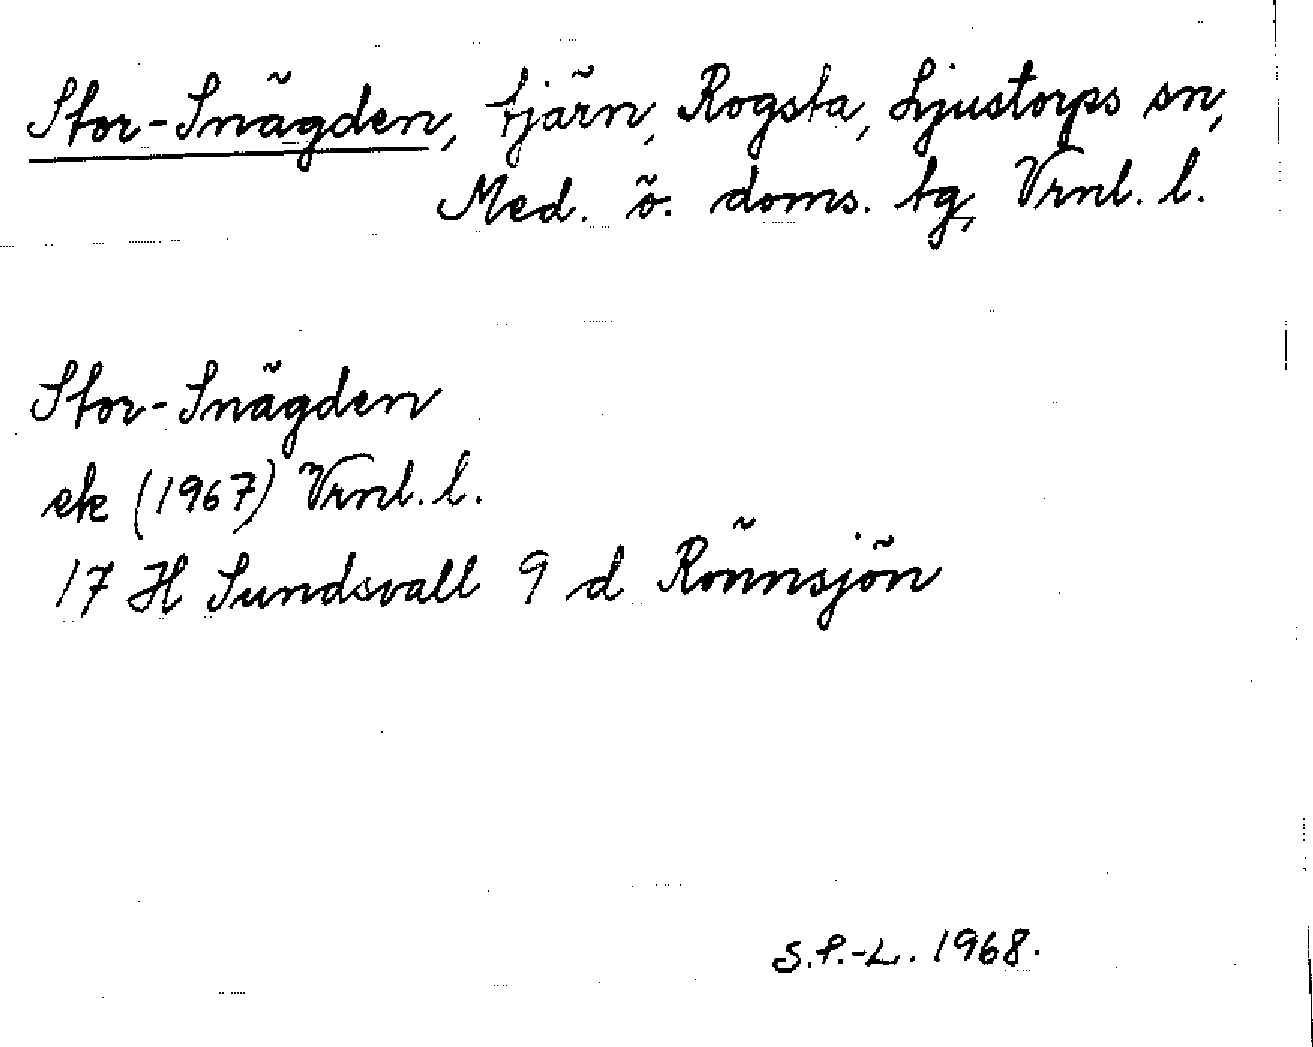 Stor-Snägden, tjärn, Rogsta, Ljustorps sn,
Med. ö. doms. tg, Vrnl. l.
Stor-Snägden
ek (1967) Vrnl. l.
17 H Sundsvall 9 d Rönnsjön
S.P.-L. 1968.